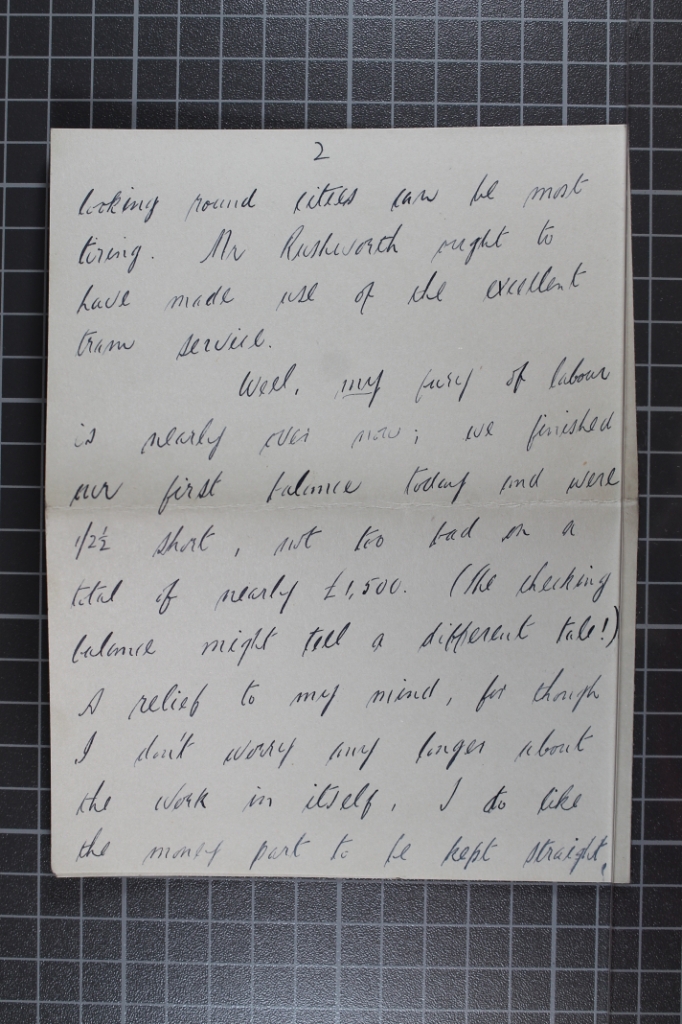 2
looking round cities can be most
tiring. Mr Rushworth ought to
have made use of the excellent
tram service.
Well, my fury of labour
is nearly over now; we finished
our first balance today and were
1/2½ short, not too bad on a
total of nearly £1,500. (The checking
balance might tell a different tale!)
A relief to my mind, for though
I don't worry any longer about
the work in itself, I do like
the money part to be kept straight,